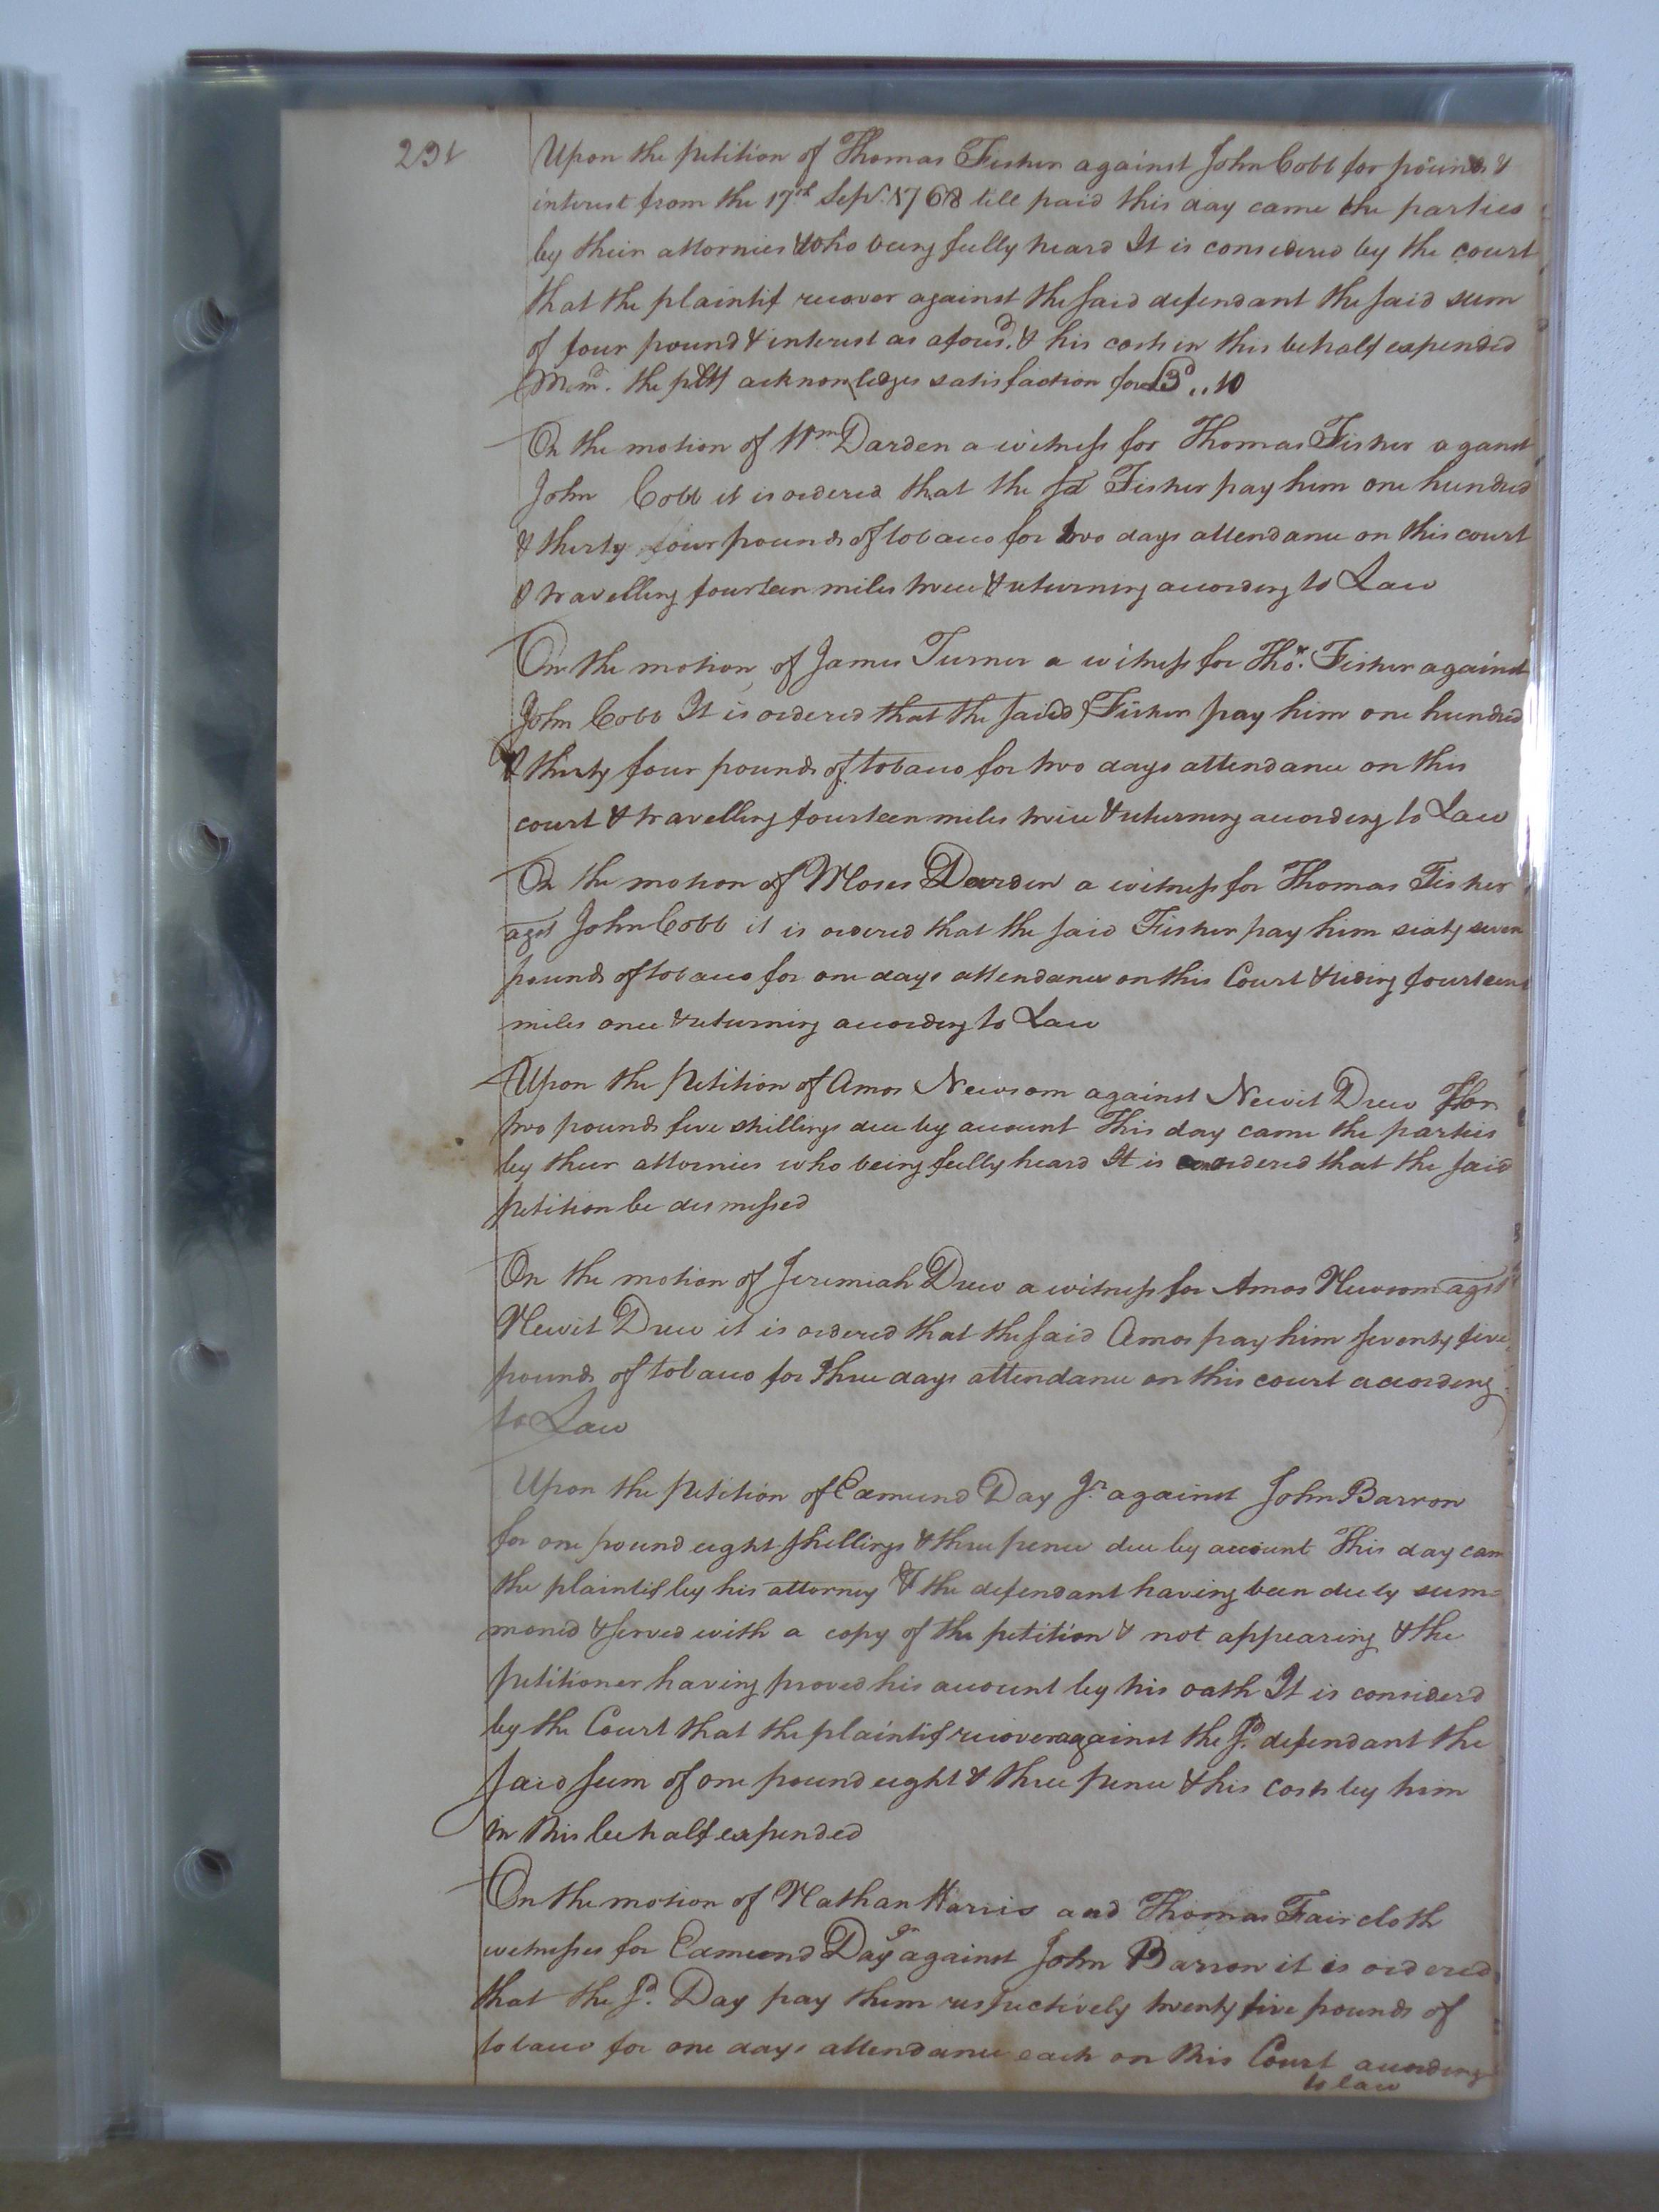 291
Upon the petition of Thomas Fisher against John Cobb for pounds &
interest from the 17th Sepr. 1768 till paid this day came the parties
by their attornies & who being fully heard It is considered by the court
that the plaintif recover against the said defendant the said sum
of four pound & interest as afousd. & his costs in this behalf expended
Mem. the plt acknowledges satisfaction for £3..10
On the motion of Wm Darden a witness for Thomas Fisher aganst
John Cobb it is ordered that the sd Fisher pay him one hundred
& thirty four pounds of tobacco for two days attendance on this court
& travelling fourteen miles twice & returning according to Law
On the motion of James Turner a witness for Thos. Fisher against
John Cobb It is ordered that the said Fisher pay him one hundred
& thirty four pounds of tobacco for two days attendance on this
court & travelling fourteen miles twice & returning according to Law
On the motion of Moses Darden a witness for Thomas Fisher
agst John Cobb it is ordered that the said Fisher pay him sixty seven
pounds of tobacco for one days attendance on this Court & riding fourteen
miles once & returning according to Law
Upon the Petition of Amos Newsom against Newit Drew For
two pounds five shillings due by account This day came the parties
by their attornies who being fully heard It is ordered that the said
petition be dismissed
On the motion of Jeremiah Drew a witness for Amos Newsom agst
Newit Drew it is ordered that the said Amos pay him seventy five
pounds of tobacco for three days attendance on this court according
to Law
Upon the petition of Edmund Day Jr. against John Barron
for one pound eight shillings & three pence due by account This day cam
the plaintif by his attorney & the defendant having been duely sum=
moned & served with a copy of the petition & not appearing & the
petitioner having proved his account by his oath It is considerd
by the Court that the plaintif recover against the sd. defendant the
said sum of one pound eight & three pence & his costs by him
in this behalf expended
On the motion of Nathan Harris and Thomas Faircloth
witnesses for Edmund Day Jr against John Barron it is ordered
that the sd. Day pay them respectively twenty five pounds of
tobacco for one days attendance each on this Court according
to law